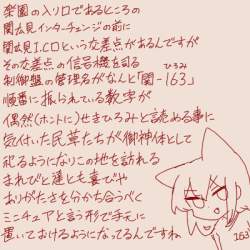 楽園の入り口であるところの
関広見インターチェンジの前に
関広見I.C口という交差点があるんですが
その交差点の信号機を司る
制御盤の管理名がなんと「関-163」
ひろみ
順番に振られている数字が
偶然(ホントに)せきひろみと読める事に
気付いた民草たちが御神体として
祀るようになりこの地を訪れる
まれびと達とも喜びや
ありがたさを分かち合うべく
ミニチュアと言う形で手元に
置いておけるようになってるんですね
163